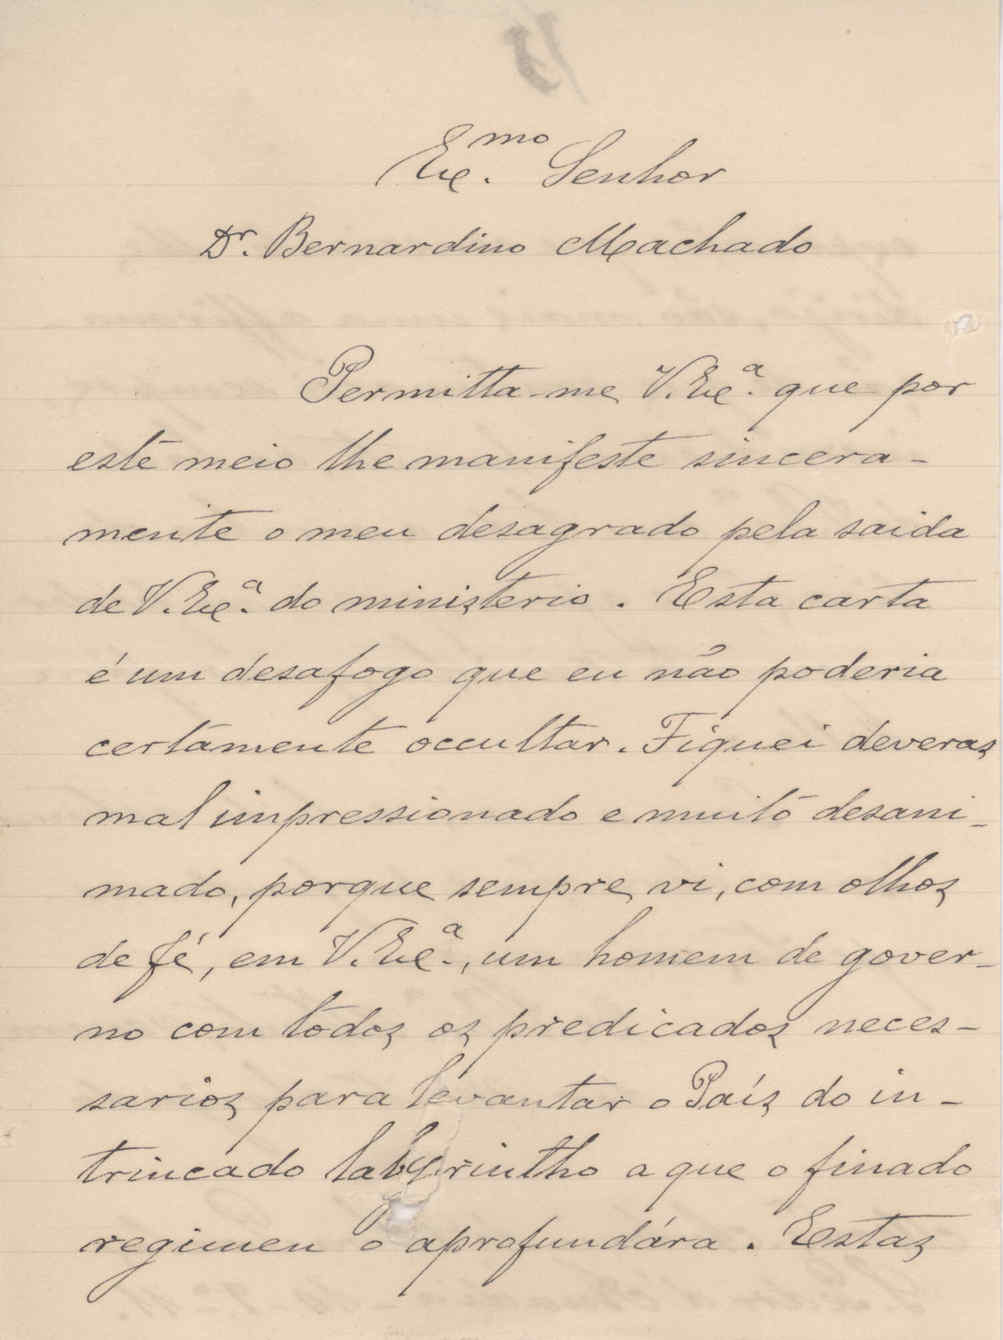 Exmo. Senhor
Dr. Bernardino Machado
Permitta-me V. Exa. que por
este meio lhe manifeste sincera-
mente o meu desagrado pela saida
de V. Exa. do ministerio. Esta carta
é um desafogo que eu não poderia
certamente occultar. Fiquei deveras
mal impressionado e muito desani-
mado, porque sempre vi, com olhos
de fé, em V. Exa., um homem de gover-
no com todos os predicados neces-
sarios para levantar o País do in-
trincado labyrintho a que o finado
regimen o aprofundára. Estas